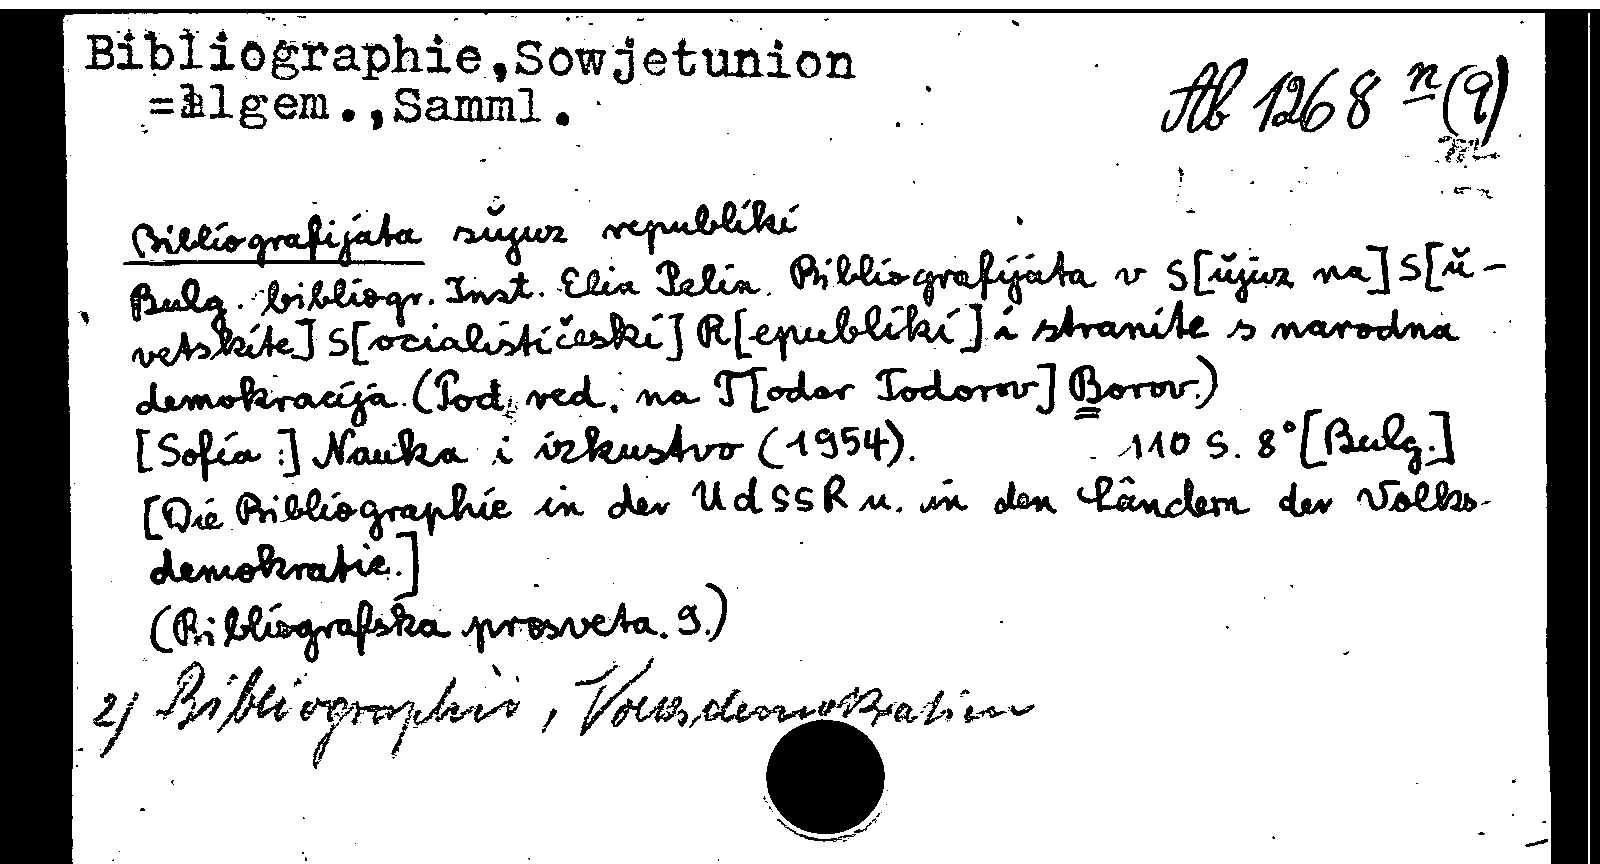 Bibliographie,Sowjetunion
=algem.,Samml.
Ab 1268 n(9)
m
Bibliografijata sŭjuz republiki
Bulg. bibliogr. Inst. Elin Pelin. Bibliografijata v S[ŭjuz na] S[ŭ-
vetskite] S[ocialističeski] R[epubliki] i stranite s narodna
demokracija. (Pod ved. na T[odor Todorov] Borov.)
[Sofia:] Nauka i izkustvo (1954). 110 S. 8° [Bulg.]
[Die Bibliographie in der UdSSR u. in den Ländern der Volks-
demokratie.]
(Bibliografska prosveta. 9.)
2) Bibliographie, Volksdemokratien